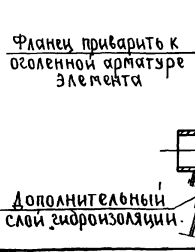 Фланец приварить к
оголенной арматуре
элемента
Дополнительный
слой гидроизоляции.